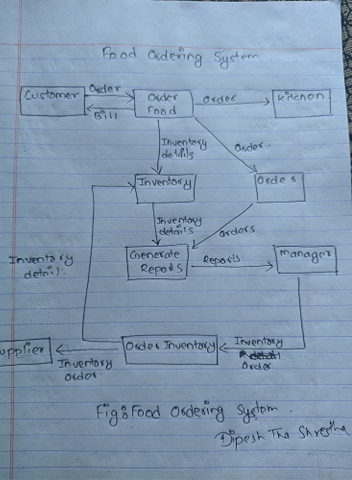 Food Ordering System
Customer
Order
Bill
Order
Food
Order
Kitchen
Inventory
details
Order
Inventory
Order
Inventory
details
Orders
Inventory
detail.
Generate
Reports
Reports
Manager
upplier
Inventory
Order.
Order Inventory
Inventory
Order
Fig: Food Ordering System.
Dipesh Tha Shrestha